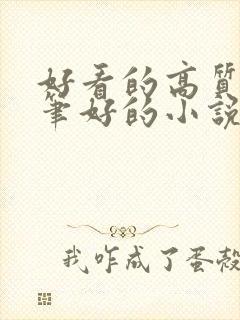 好看的高质
筆好的小说
我咋成了蛋殼